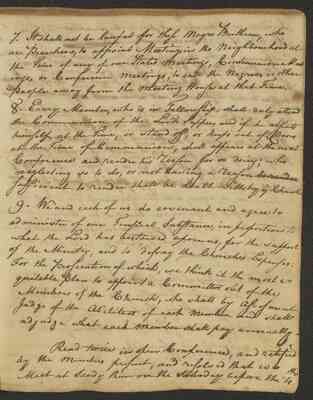 7. It shall not be lawful for those Negro Brethren, who
are Preachers, to appoint Meetings in the Neighbourhood at
the Time of any of our Stated Meetings, Communion Meet
ings or Conference Meetings, to call the Negroes or other
People away from the Meeting House at that Time.
8. Every Member, who is in Fellowship shall duly attend
the Communion of the Lord's Supper and if he
at the Time, or stand off or keeps out of
at the Time of Communion, shall appear at the next
Conference and render his Reason for so doing; who
neglecting so to do, or not having a Reason
sufficient to render shall be dealt with by the Church
9. We and each of us do covenant and agree to
administer of our Temporal Substance, in proportion to
what the Lord has bestowed upon us, for the Support
of the Ministry, and to defray the Churches Expenses.
For the Prosecution of which, we think it the most e
quitable Plan to appoint a Committee out of the
Members of the Church, who shall
Judge of the Abilities of each Member and shall
adjudge what each Member shall pay annually.
Read twice in open Conference, and ratified
by the Members present, and resolved that we
Meet at Sandy Run on the Saturday before the 4th